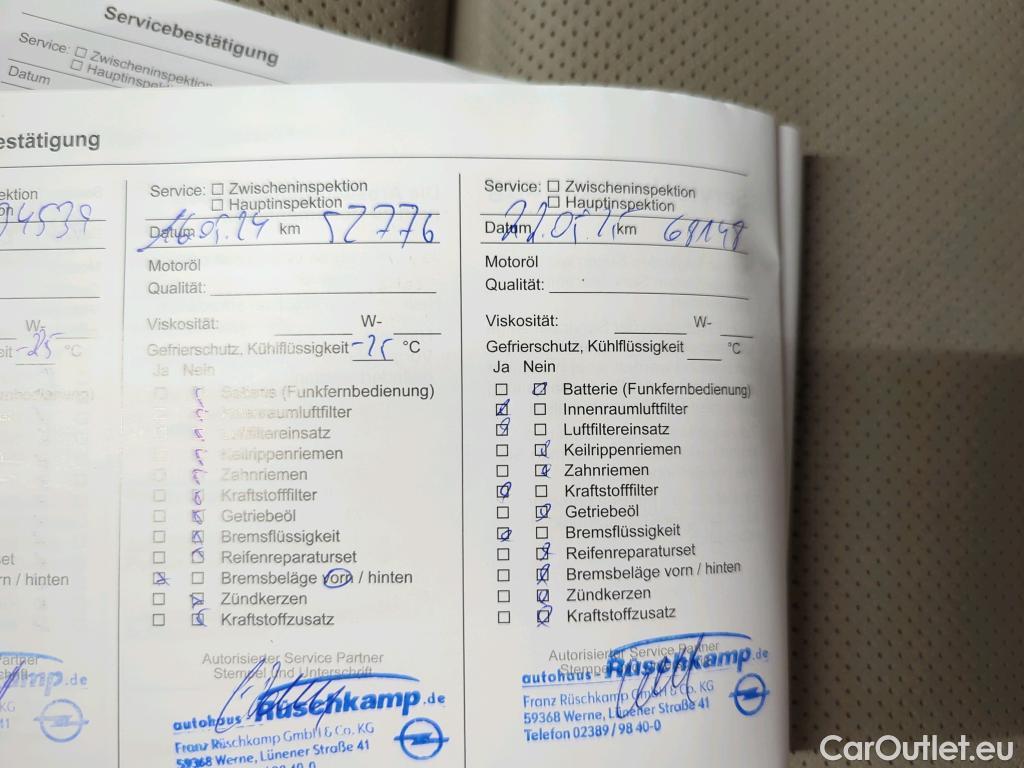 Servicebestätigung
Service: □ Zwischeninspektion
□ Hauptinspekti
Datum
estätigung
ektion
94539
W-
eit -25 °C
set
rn / hinten
artner
mp.de
KG
41
Service: □ Zwischeninspektion
□ Hauptinspektion
Datum 16.05.24 km 52776
Motoröl
Qualität:
Viskosität: W-
Gefrierschutz, Kühlflüssigkeit -25 °C
Ja Nein
Batterie (Funkfernbedienung)
Innenraumluftfilter
Luftfiltereinsatz
Keilrippenriemen
Zahnriemen
Kraftstofffilter
Getriebeöl
Bremsflüssigkeit
Reifenreparaturset
Bremsbeläge vorn / hinten
Zündkerzen
Kraftstoffzusatz
Autorisierter Service Partner
Stempel und Unterschrift
autohaus Rüschkamp.de
Franz Rüschkamp GmbH & Co. KG
59368 Werne, Lünener Straße 41
Service: □ Zwischeninspektion
□ Hauptinspektion
Datum 22.05.25 km 68148
Motoröl
Qualität:
Viskosität: W-
Gefrierschutz, Kühlflüssigkeit °C
Ja Nein
Batterie (Funkfernbedienung)
Innenraumluftfilter
Luftfiltereinsatz
Keilrippenriemen
Zahnriemen
Kraftstofffilter
Getriebeöl
Bremsflüssigkeit
Reifenreparaturset
Bremsbeläge vorn / hinten
Zündkerzen
Kraftstoffzusatz
Autorisierter Service Partner
autohaus - Rüschkamp.de
Franz Rüschkamp GmbH & Co. KG
59368 Werne, Lünener Straße 41
Telefon 02389 / 98 40-0
CarOutlet.eu